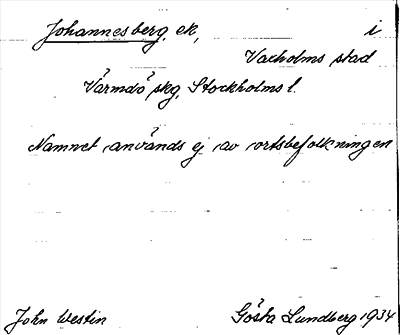 Johannesberg, ek, i
Vaxholms stad
Värmdö skg, Stockholms l.
Namnet användes ej av ortsbefolkningen
John Westin Gösta Lundberg 1934